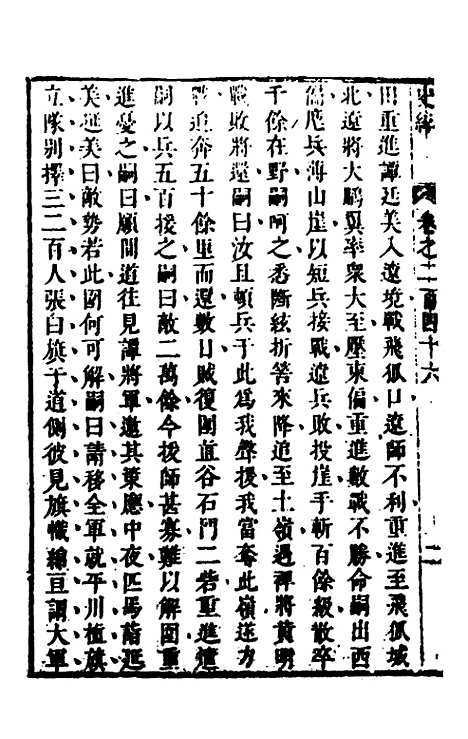 史緯 卷之二百四十六 二
田重進譚延美入遼境戰飛狐口遼師不利重進至飛狐城
北遼將大鵬翼率衆大至壓東偏重進數戰不勝命嗣出西
偏應兵薄山崖以短兵接戰遼兵敗投崖手斬百餘級散卒
千餘在野嗣呵之悉斷絃折筈來降追至土嶺遇裨將黄明
戰敗將還嗣曰汝且頓兵于此爲我聲援我當奪此嶺遂力
戰追奔五十餘里而還數日賊復圍直谷石門二砦重進遣
嗣以兵五百援之嗣曰敵二萬餘今援師甚寡難以解圍重
進憂之嗣曰願間道往見譚將軍邀其策應中夜匹馬詣延
美延美曰敵勢若此圍何可解嗣曰請移全軍就平川植旗
立隊别擇三二百人張白旗于道側彼見旗幟綿亘謂大軍